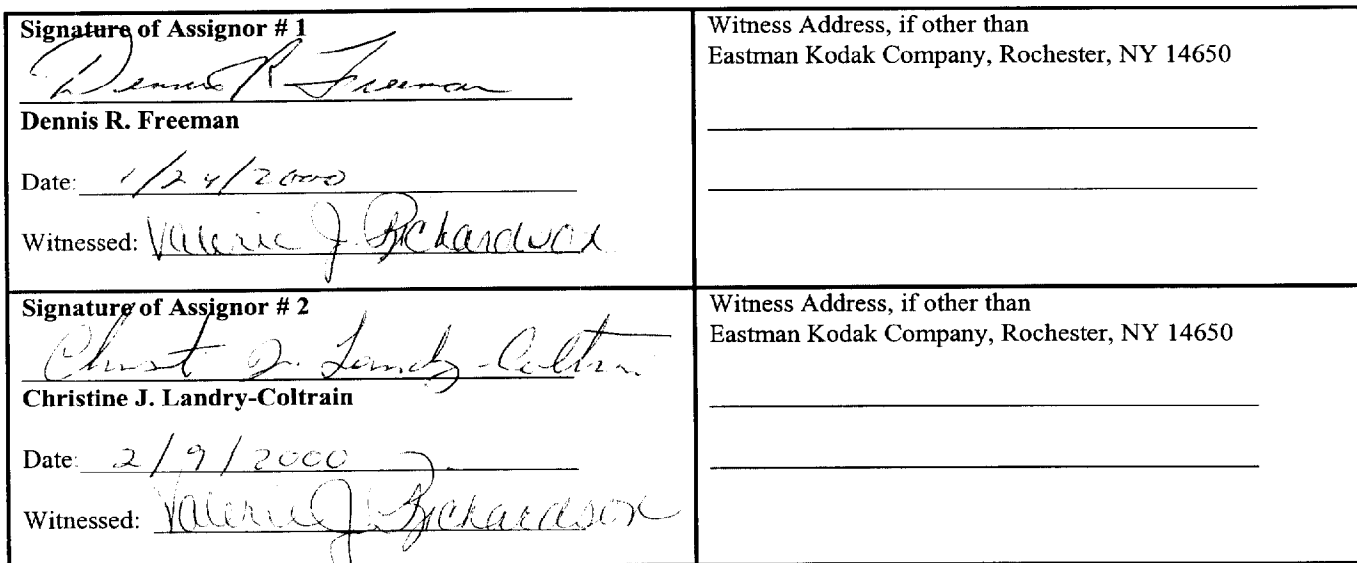 Signature of Assignor # 1
Dennis R Freeman
Dennis R. Freeman
Date: 1/24/2000
Witnessed: Valerie J. Richardson
Witness Address, if other than
Eastman Kodak Company, Rochester, NY 14650
Signature of Assignor # 2
Christ J. Landry-Coltrain
Christine J. Landry-Coltrain
Date: 2/9/2000
Witnessed: Valerie J. Richardson
Witness Address, if other than
Eastman Kodak Company, Rochester, NY 14650